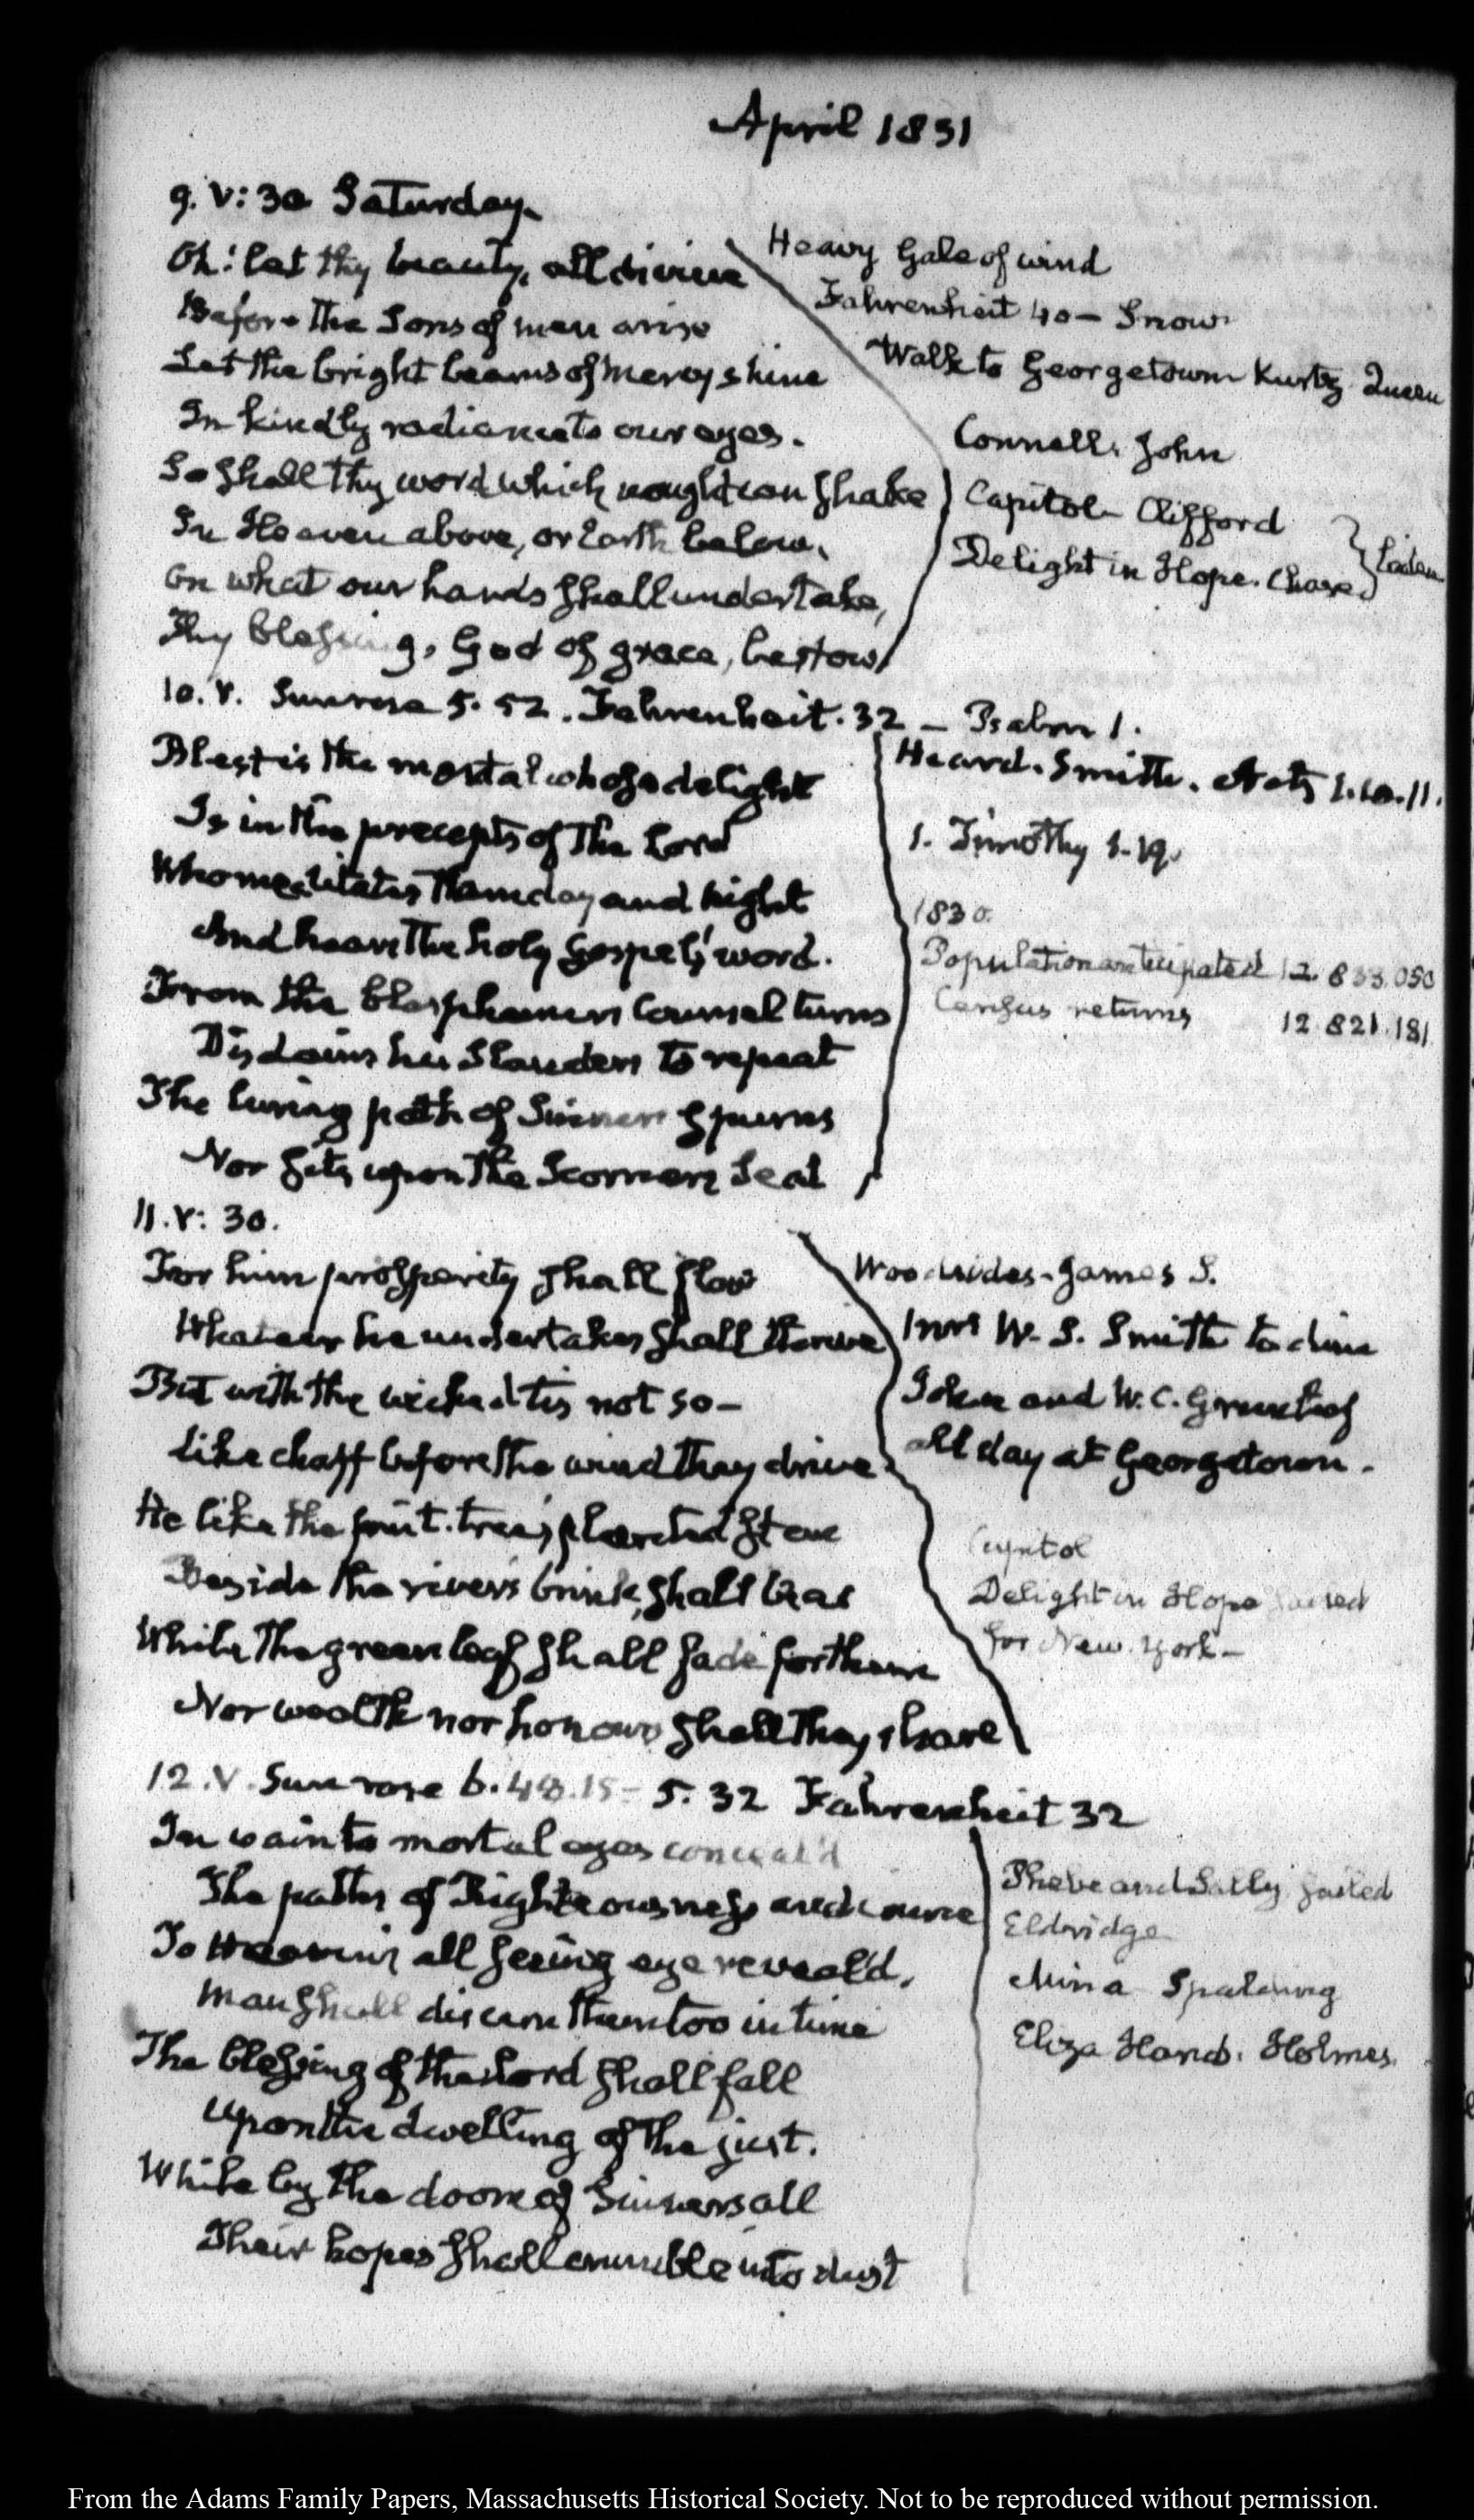 April 1831
9. V: 30. Saturday.
Oh! let thy beauty, all divine
Before the Sons of men arise
Let the bright beams of mercy shine
In kindly radiance to our eyes.
So shall thy word which nought can shake
In Heaven above, or Earth below,
On what our hands shall undertake,
Thy blessing, God of grace, bestow
Heavy Gale of wind
Fahrenheit 40 — Snow
Walk to Georgetown Kurtz Queen
Connell. John
Capitol — Clifford
Delight in Hope. Chase
10. V. Sunrise 5. 52. Fahrenheit. 32 — Psalm 1.
Blest is the mortal whose delight
Is in the precepts of the Lord
Who meditates them day and night
And hears the holy Gospel's word.
From the blasphemers Counsel turns
Disdains his Slanders to repeat
The luring path of Sinners spurns
Nor sits upon the Scorners Seat
Heard. Smith. Acts 1.10.11.
1. Timothy 1.19.
1830.
Population anticipated 12.833.050
Census returns 12.821.181
11. V: 30.
For him prosperity shall flow
Whateer he undertakes shall thrive
But with the wicked tis not so —
Like chaff before the wind they drive
He like the fruit-tree's planted stem
Beside the river's brink, shall bear
While the green leaf shall fade for them
Nor wealth nor honours shall they share
James S.
Mrs W. S. Smith to dine
John and W. C. Greenleaf
all day at Georgetown.
Capitol
Delight in Hope sailed
for New-York —
12. V. Sun rose 6. 48.15 — 5. 32 Fahrenheit 32
In vain to mortal eyes conceal'd
The paths of Righteousness and crime
To Heaven's all seeing eye reveal'd,
Man shall discern them too in time
The blessing of the Lord shall fall
Upon the dwelling of the just.
While by the doom of Sinners all
Their hopes shall crumble into dust
Phebe and Sally sailed
Eldridge
Mina Spalding
Eliza Hand. Holmes.
From the Adams Family Papers, Massachusetts Historical Society. Not to be reproduced without permission.